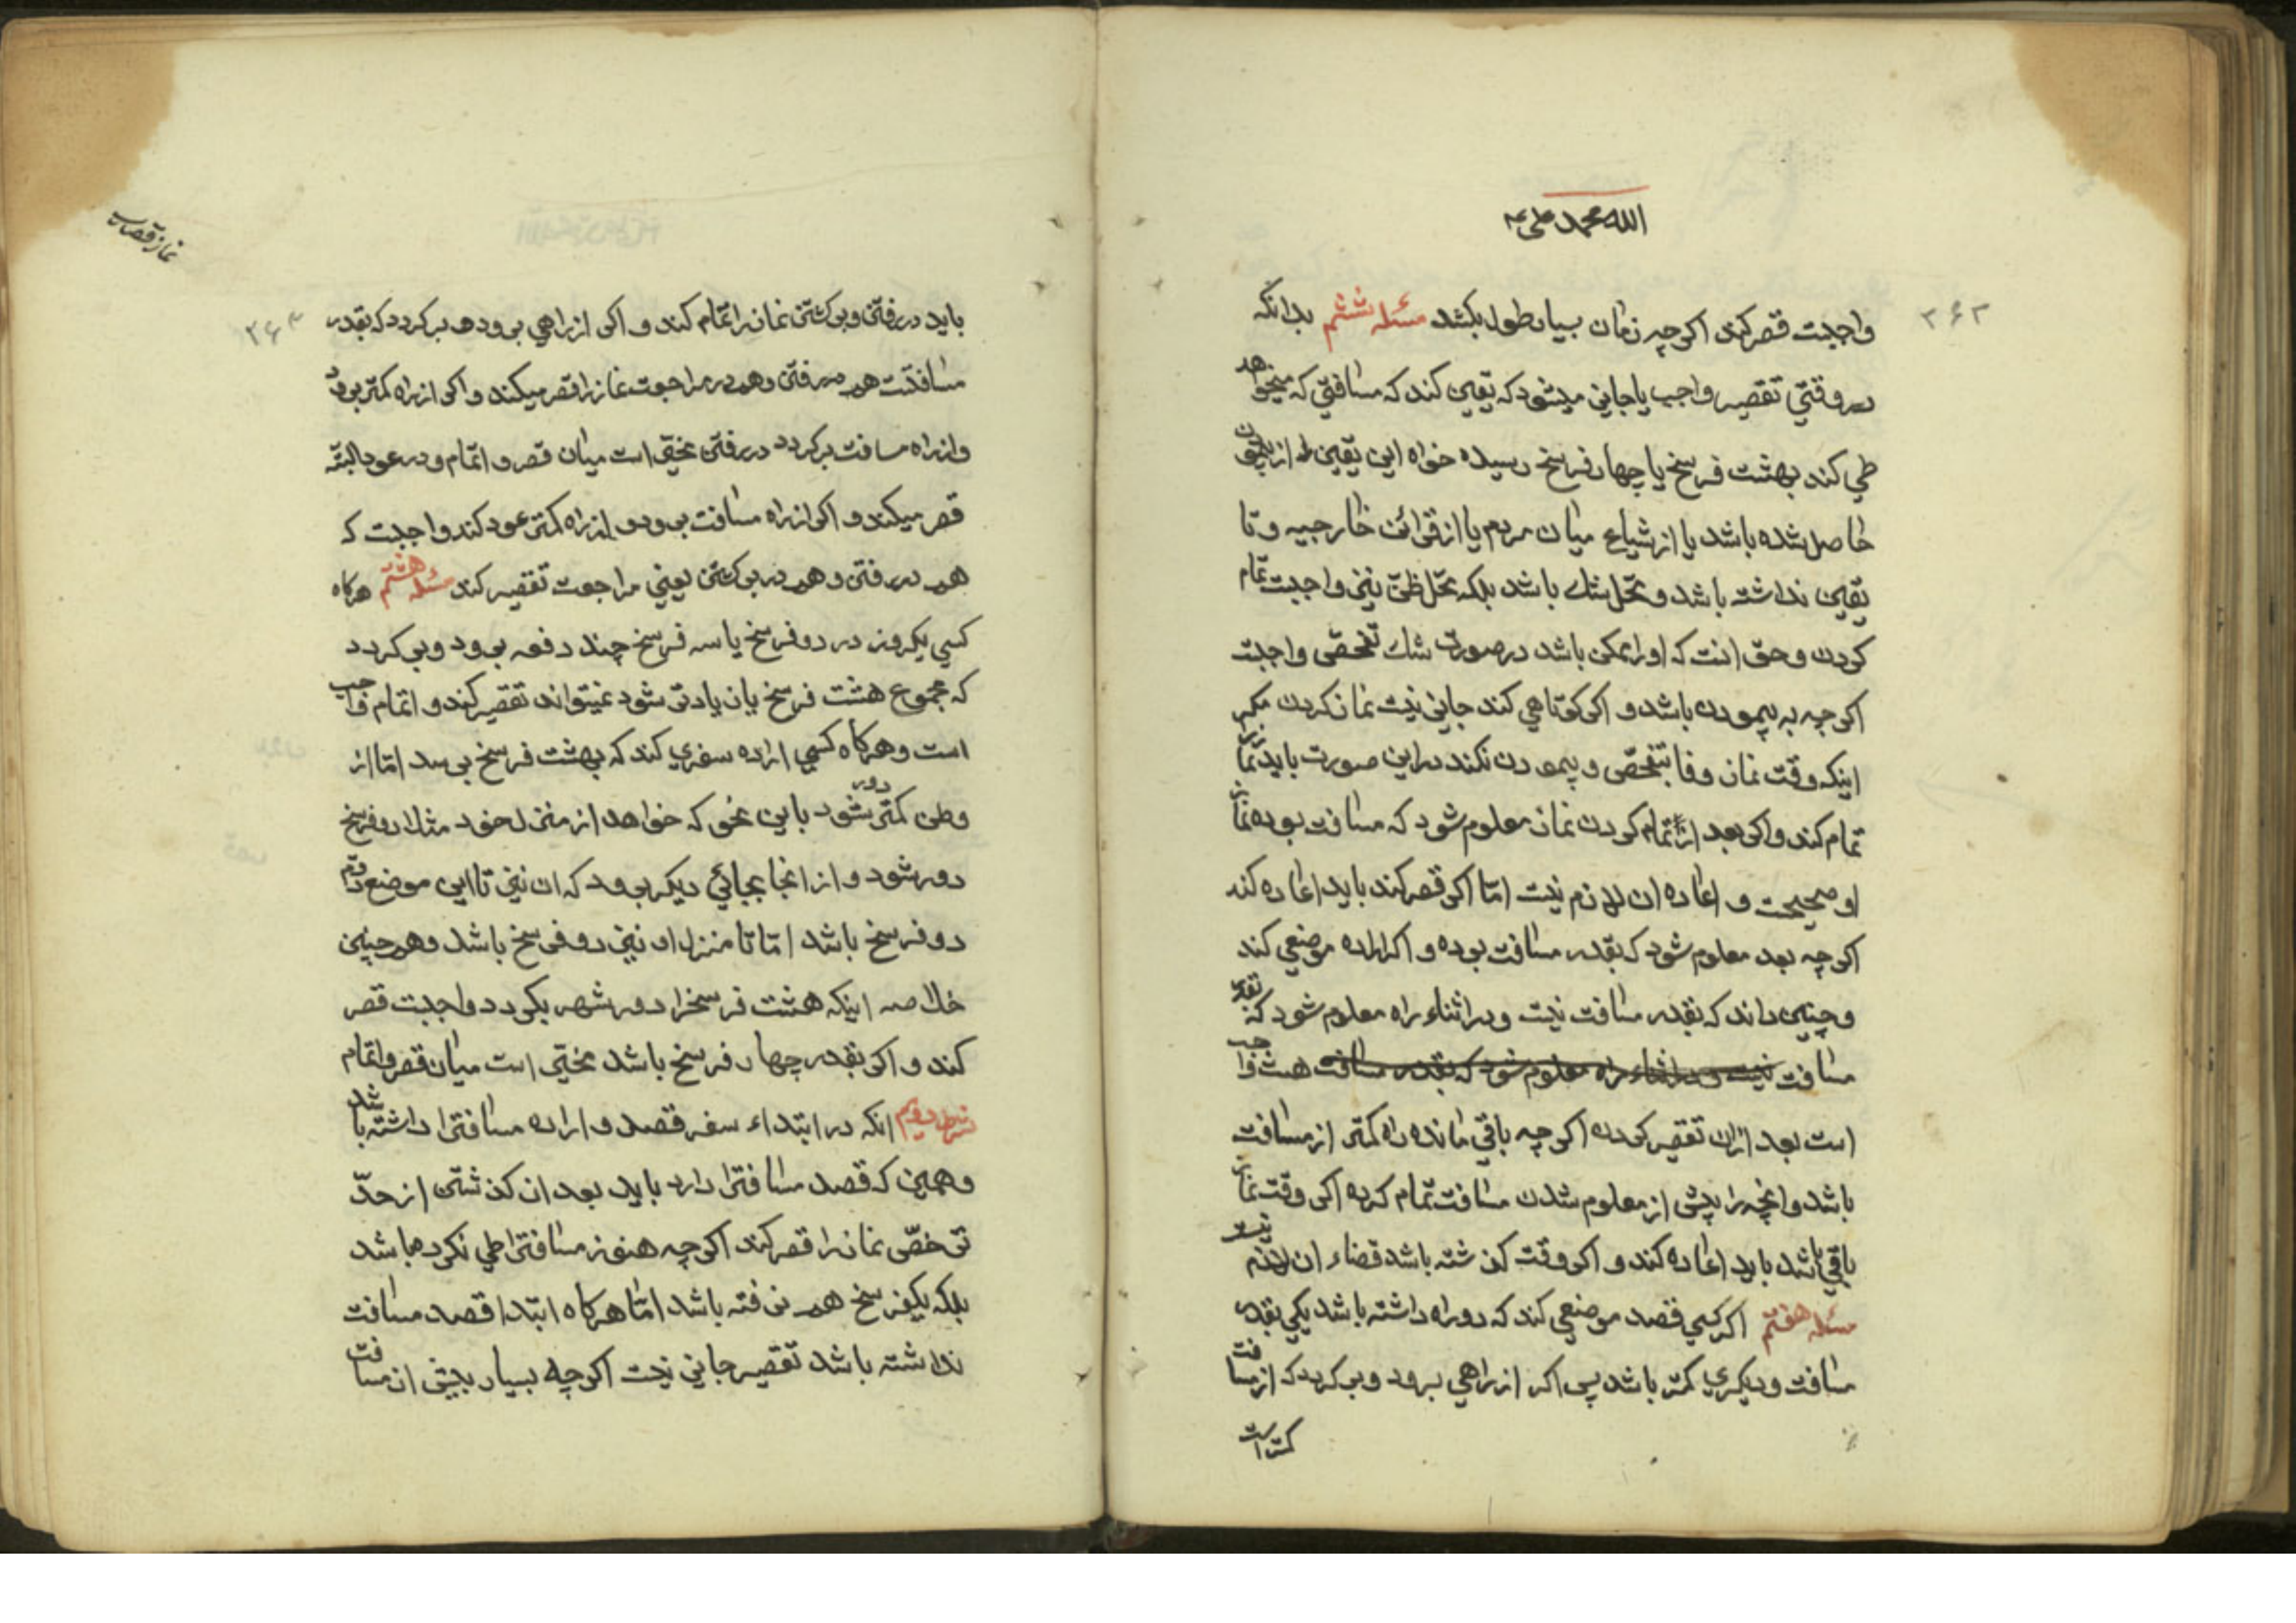 الله محمد علی
۳۶۳
واجبست قصر کند اکرچه زمان بسیار طول بکشد مسئله ششم بدانکه
در وقتی تقصیر واجب یا جایز میشود که یقین کند که مسافتی که میخواهد
طی کند بهشت فرسخ یا چهار فرسخ رسیده خواه این یقین از پیمودن
حاصل شده باشد یا از شیاع میان مردم یا از قرائن خارجیه و تا
یقین نداشته باشد و محل شك باشد بلکه محل ظن نیز واجبست تمام
کردن و حق انست که اورا ممکن باشد در صورت شك تفحص واجبست
اکرچه به پیمودن باشد و اکر کوتاهی کند جایز نیست نماز کردن مکر
اینکه وقت نماز وفا بتفحص و پیمودن نکند در این صورت باید نماز را
تمام کند و اکر بعد از تمام کردن نماز معلوم شود که مسافت بوده نماز
او صحیحست و اعاده ان لازم نیست امّا اکر قصر کند باید اعاده کند
اکرچه بعد معلوم شود که بقدر مسافت بوده و اکر اراده موضعی کند
و چنین داند که بقدر مسافت نیست و در اثناء راه معلوم شود که بقدر
مسافت نیست و در اثناء راه معلوم شود که بقدر مسافت هست واجب
است بعد از ان تقصیر کردن اکرچه باقی مانده راه کمتر از مسافت
باشد و انچه را پیش از معلوم شدن مسافت تمام کرده اکر وقت نماز
باقی باشد باید اعاده کند و اکر وقت کذشته باشد قضاء ان لازم نیست
مسئله هفتم اکر کسی قصد موضعی کند که دو راه داشته باشد یکی بقدر
مسافت و دیکری کمتر باشد پس اکر از راهی برود و بر کردد که از مسافت
کمتر است
نماز قصر
۳۶۴
باید در رفتن و بر کشتن نماز را تمام کند و اکر از راهی برود و بر کردد که بقدر
مسافتست هم در رفتن و هم در مراجعت نماز را قصر میکند و اکر از راه کمتر برود
و از راه مسافت بر کردد در رفتن مخیر است میان قصر و اتمام و در عود البته
قصر میکند و اکر از راه مسافت برود و از راه کمتر عود کند واجبست که
هم در رفتن و هم در بر کشتن یعنی مراجعت تقصیر کند مسئله هشتم هرکاه
کسی یکروز در دو فرسخ یا سه فرسخ چند دفعه برود و بر کردد
که مجموع هشت فرسخ یا زیادتر شود نمیتواند تقصیر کند و اتمام واجب
است و هرکاه کسی اراده سفری کند که بهشت فرسخ برسد امّا از
وطن کمتر دور شود باین نحو که خواهد از منزل خود مثلا دو فرسخ
دور شود و از انجا بجائی دیکر برود که ان نیز تا این موضع دویم
دو فرسخ باشد امّا تا منزل او نیز دو فرسخ باشد و همچنین
خلاصه اینکه هشت فرسخرا دور شهر بکردد واجبست قصر
کند و اکر بقدر چهار فرسخ باشد مخیر است میان قصر و اتمام
شرط دویم انکه در ابتداء سفر قصد و اراده مسافترا داشته باشد
و همین که قصد مسافترا دارد باید بعد از کذشتن از حدّ
ترخّص نماز را قصر کند اکرچه هنوز مسافترا طی نکرده باشد
بلکه یکفرسخ هم نرفته باشد امّا هرکاه ابتدا قصد مسافت
نداشته باشد تقصیر جایز نیست اکرچه بسیار بیش از مسافت